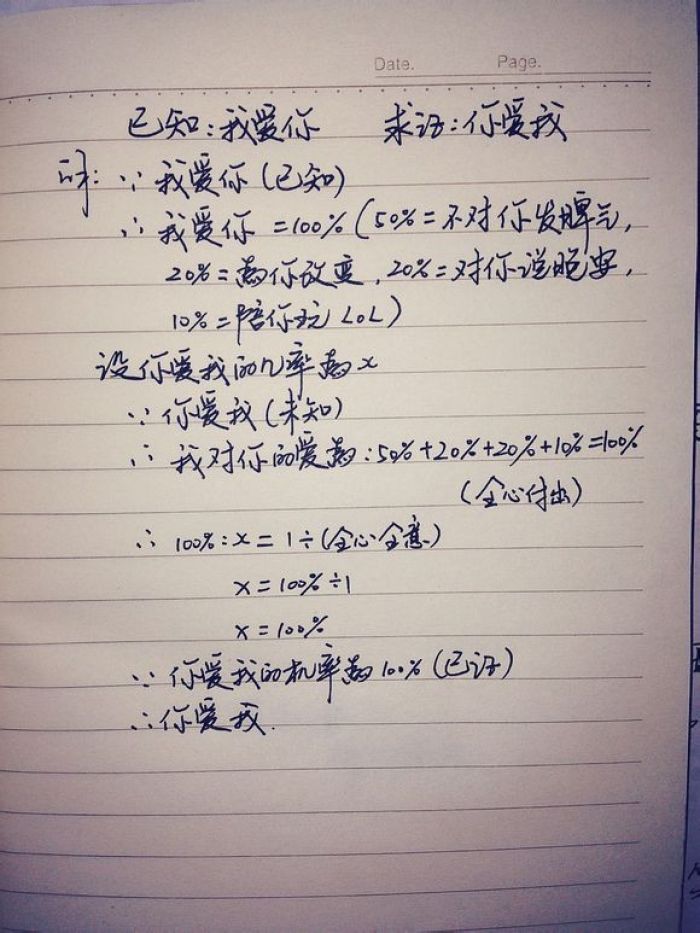 Date. Page.
已知：我爱你 求证：你爱我
证：∵我爱你（已知）
∴我爱你=100%（50%=不对你发脾气，
20%=为你改变，20%=对你说晚安，
10%=陪你玩LOL）
设你爱我的几率为x
∵你爱我（未知）
∴我对你的爱为：50%+20%+20%+10%=100%
（全心付出）
∴100%：x=1÷（全心全意）
x=100%÷1
x=100%
∵你爱我的机率为100%（已证）
∴你爱我.